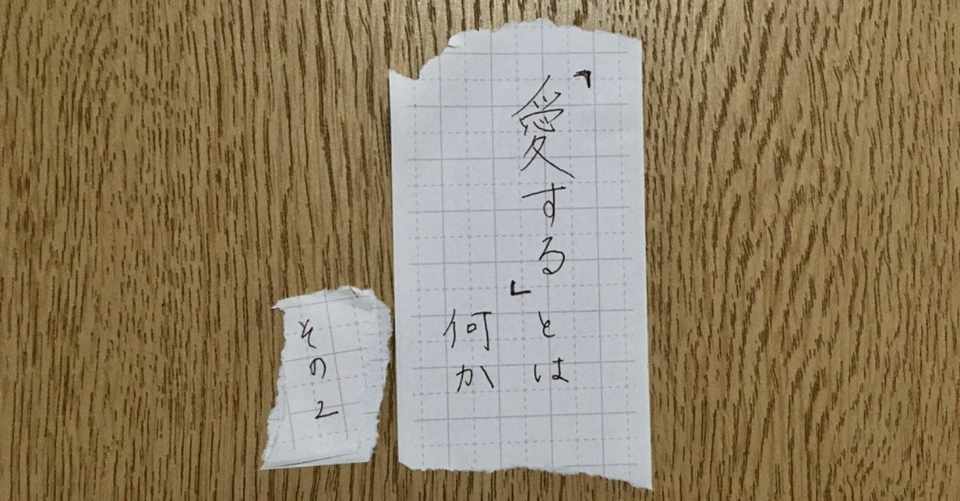 「愛する」とは
何か
その2